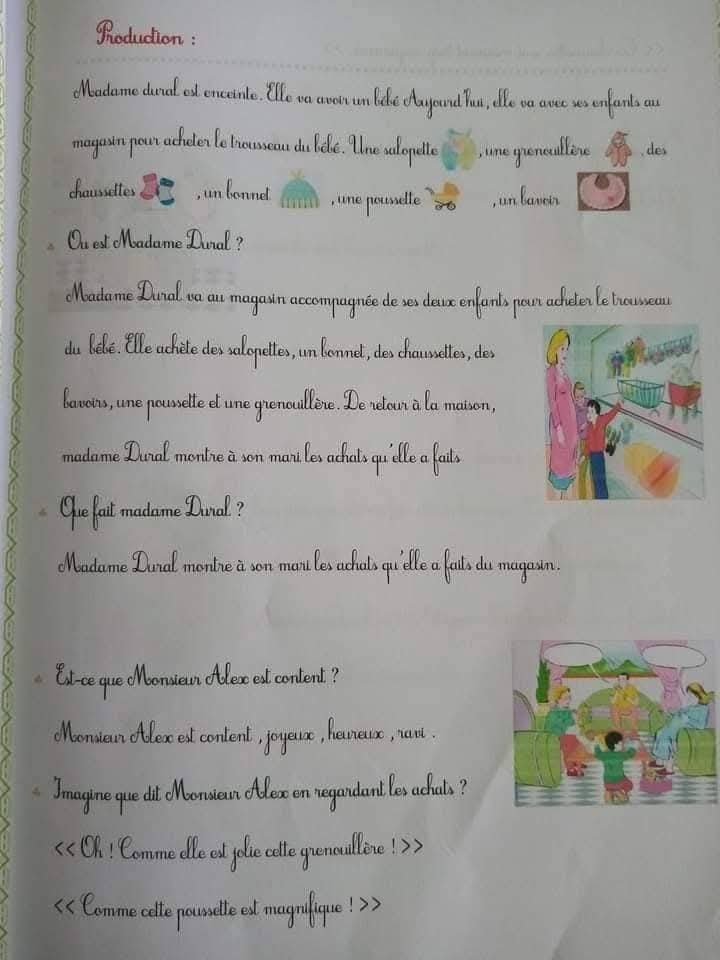 Production :
Madame dural est enceinte. Elle va avoir un bébé Aujourd'hui, elle va avec ses enfants au
magasin pour acheter le trousseau du bébé. Une salopette , une grenouillère , des
chaussettes , un bonnet , une poussette , un bavoir
Ou est Madame Dural ?
Madame Dural va au magasin accompagnée de ses deux enfants pour acheter le trousseau
du bébé. Elle achète des salopettes, un bonnet, des chaussettes, des
bavoirs, une poussette et une grenouillère. De retour à la maison,
madame Dural montre à son mari les achats qu'elle a faits
Que fait madame Dural ?
Madame Dural montre à son mari les achats qu'elle a faits du magasin.
Est-ce que Monsieur Alex est content ?
Monsieur Alex est content , joyeux , heureux , ravi .
Imagine que dit Monsieur Alex en regardant les achats ?
<< Oh ! Comme elle est jolie cette grenouillère ! >>
<< Comme cette poussette est magnifique ! >>